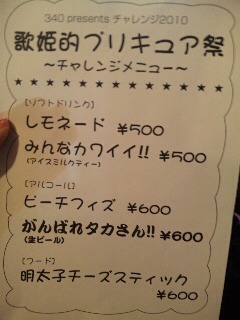 340 presents チャレンジ2010
歌姫的プリキュア祭
～チャレンジメニュー～
★★★★★★★★★★★★★
[ソフトドリンク]
レモネード ¥500
みんなカワイイ!! ¥500
(アイスミルクティー)
[アルコール]
ピーチフィズ ¥600
がんばれタカさん!! ¥600
(生ビール)
[フード]
明太子チーズスティック
¥600